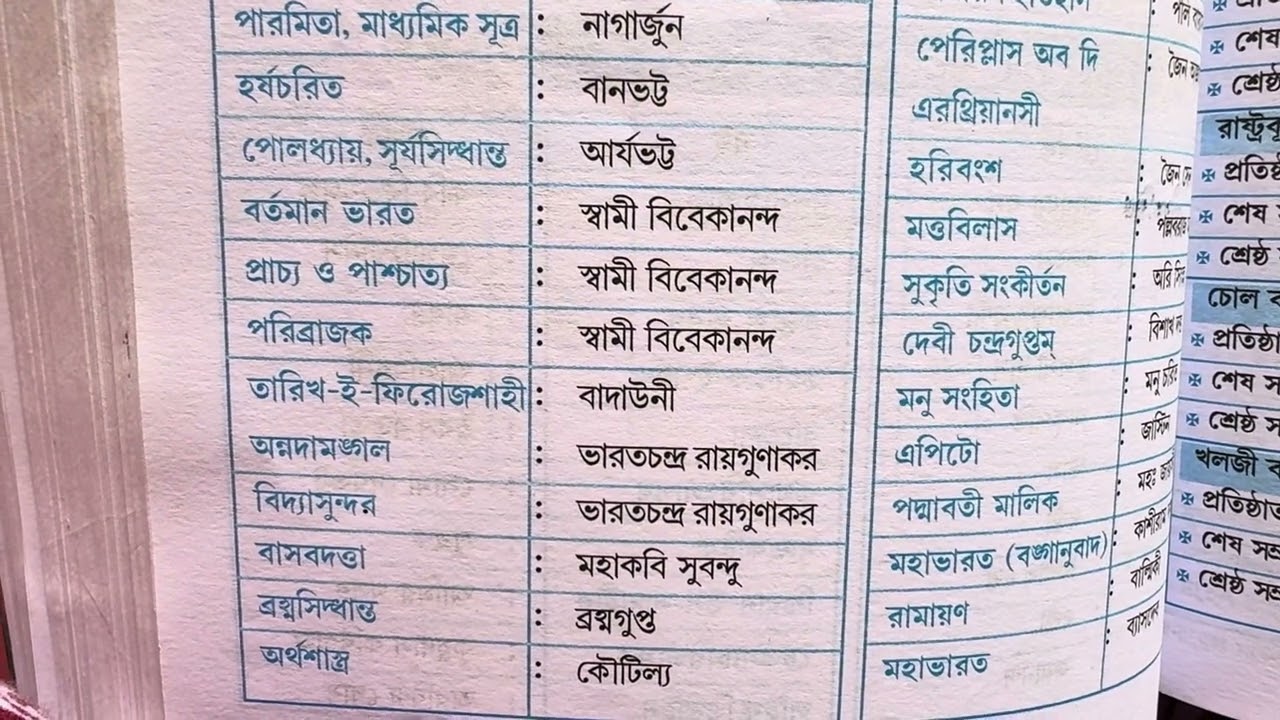 পারমিতা, মাধ্যমিক সূত্র : নাগার্জুন
হর্ষচরিত : বানভট্ট
পোলধ্যায়, সূর্যসিদ্ধান্ত : আর্যভট্ট
বর্তমান ভারত : স্বামী বিবেকানন্দ
প্রাচ্য ও পাশ্চাত্য : স্বামী বিবেকানন্দ
পরিব্রাজক : স্বামী বিবেকানন্দ
তারিখ-ই-ফিরোজশাহী : বাদাউনী
অন্নদামঙ্গল : ভারতচন্দ্র রায়গুণাকর
বিদ্যাসুন্দর : ভারতচন্দ্র রায়গুণাকর
বাসবদত্তা : মহাকবি সুবন্দু
ব্রহ্মসিদ্ধান্ত : ব্রহ্মগুপ্ত
অর্থশাস্ত্র : কৌটিল্য
পেরিপ্লাস অব দি : জৈন
এরথ্রিয়ানসী
হরিবংশ : জৈন
মত্তবিলাস :
সুকৃতি সংকীর্তন : অরি
দেবী চন্দ্রগুপ্তম্ : বিশাখ
মনু সংহিতা : মনু
এপিটো : জাস্টিন
পদ্মাবতী মালিক : মহঃ
মহাভারত (বঙ্গানুবাদ) : কাশীরাম
রামায়ণ : বাল্মিকী
মহাভারত : ব্যাসদেব
শেষ
শ্রেষ্ঠ
প্রতিষ্ঠ
শেষ
শ্রেষ্ঠ
চোল
প্রতিষ্ঠা
শেষ স
শ্রেষ্ঠ স
খলজী
প্রতিষ্ঠা
শেষ সম্র
শ্রেষ্ঠ সম্র